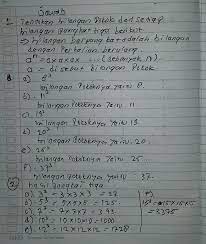 Jawab
1. Tentukan bilangan Pokok dari setiap
bilangan Pangkat tiga berikut
→ bilangan berpangkat adalah bilangan
dengan Perkalian berulang.
aⁿ = axaxax ... (sebanyak n)
a = disebut bilangan Pokok.
a) 5³
bilangan Pokoknya yaitu 5.
b) 11³
bilangan Pokoknya yaitu 11.
c) 13³
bilangan Pokoknya yaitu 13.
d) 20³
bilangan Pokoknya yaitu 20.
e) 25³
bilangan Pokoknya yaitu 25.
f) 37³
bilangan Pokoknya yaitu 37.
2. hasil Pangkat tiga
a) 3³ = 3x3x3 = 27.
b) 5³ = 5x5x5 = 125.
c) 7³ = 7x7x7 = 343
d) 10³ = 10x10x10 = 1000
e) 12³ = 12x12x12 = 1728.
15³ = 15x15x15
= 3375